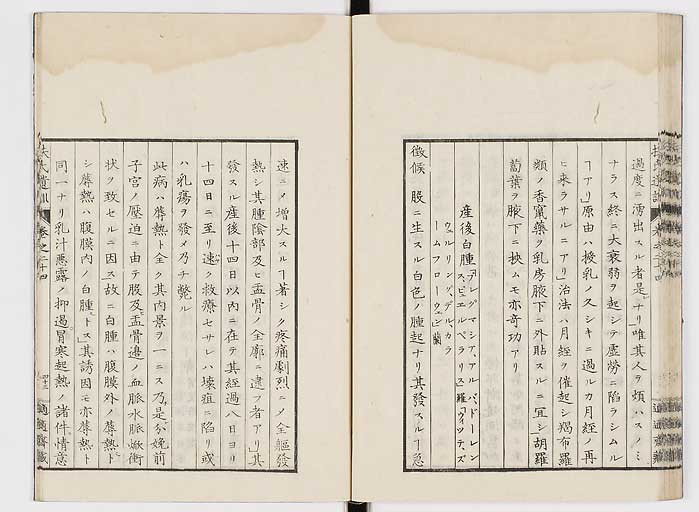 過度ニ湧出スル者是ナリ唯其人ヲ煩ハスノミ
ナラス終ニ大衰弱ヲ起シテ虚勞ニ陷ラシムル
ヿアリ原由ハ授乳ノ久シキニ過ルカ月經ノ再
ヒ来ラサルニアリ治法ハ月經ヲ催起シ羯布羅
類ノ香竄藥ヲ乳房腋下ニ外貼スルニ宜シ胡羅
蔔葉ヲ腋下ニ挾ムモ亦奇功アリ
産後白腫
徴候 股ニ生スル白色ノ腫起ナリ其發スルヿ急
速ニメ増大スルヿ著シク疼痛劇烈ニメ全軀發
熱シ其腫陰部及ヒ盂骨ノ全廓ニ達フ者アリ其
發スル産後十四日以内ニ在テ其經過八日ヨリ
十四日ニ至リ速ク救療セサレハ壊疽ニ陷リ或
ハ乳瘍ヲ發メ乃チ斃ル
此病ハ蓐熱ト全ク其内景ヲ一ニス乃是分娩前
子宮ノ壓迫ニ由テ股及盂骨邊ノ血脈水脈衂衝
状ヲ致セルニ因ス故ニ白腫ハ腹膜外ノ蓐熱ト
シ蓐熱ハ腹膜内ノ白腫トス其誘因モ亦蓐熱ト
同一ナリ乳汁惡露ノ抑遏冒寒起熱ノ諸件情意
扶氏遺訓
卷之二十四
四十三
適適齋藏